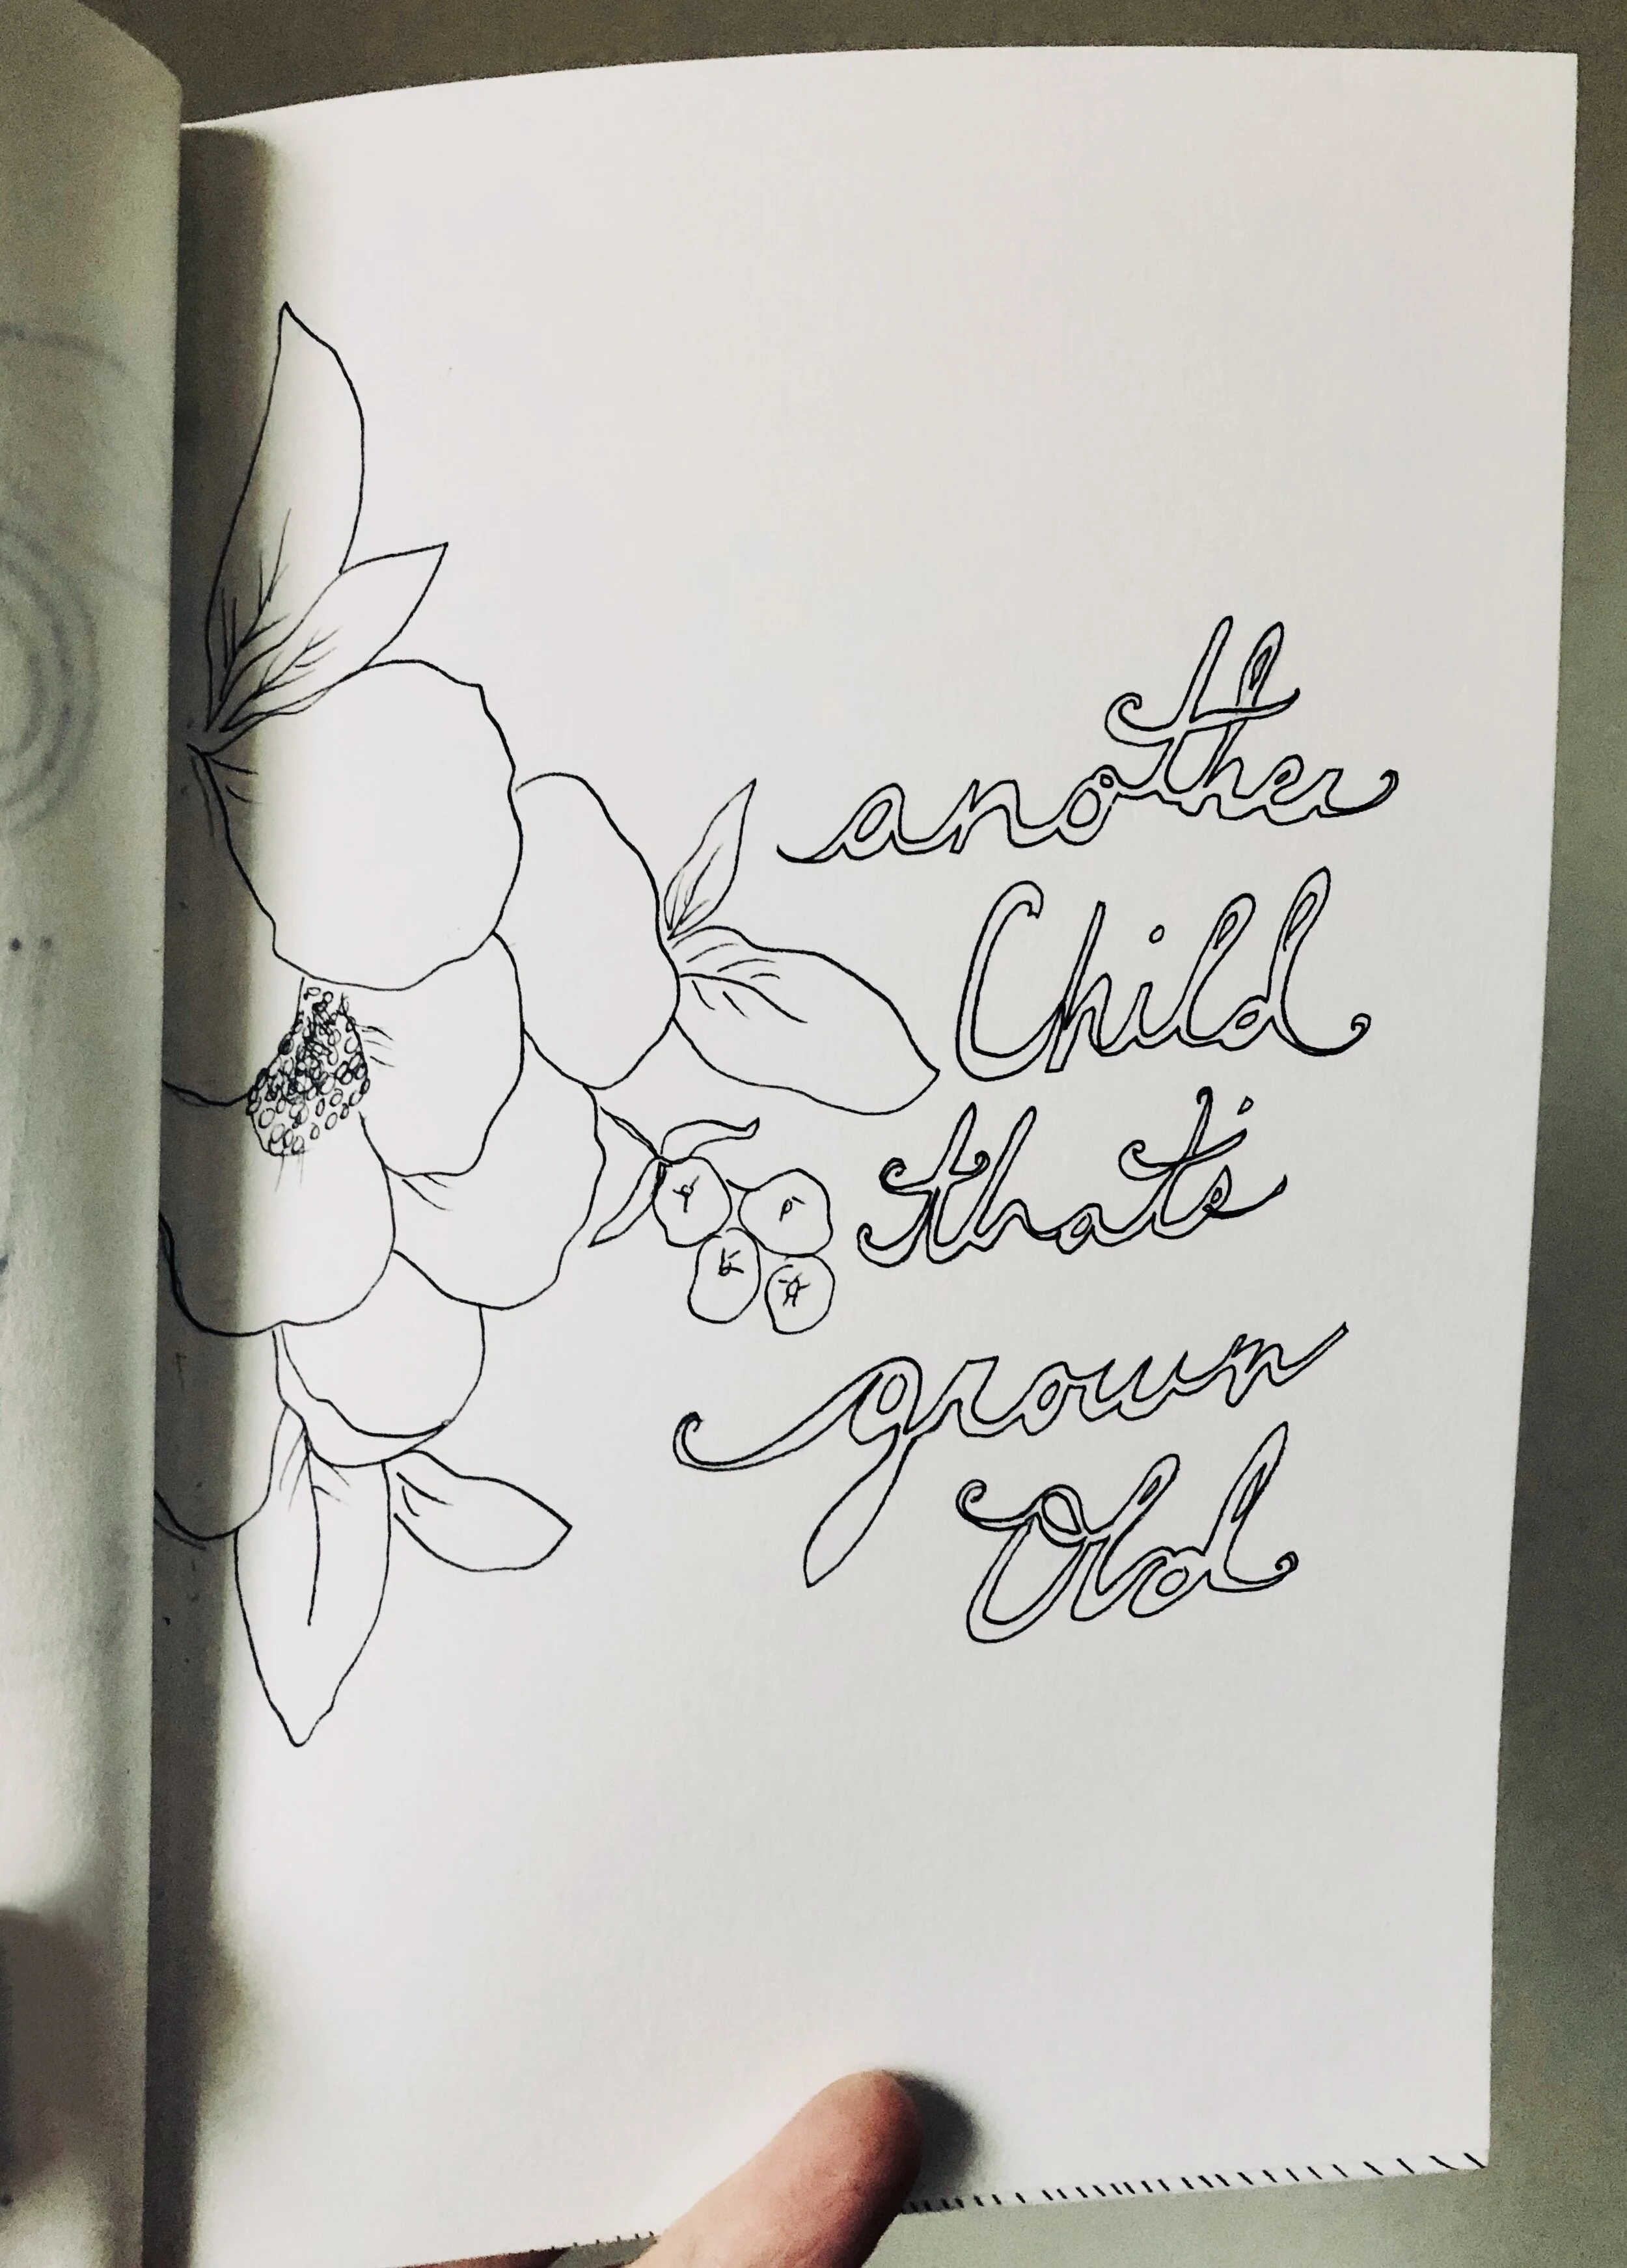 another
Child
that's
grown
Old